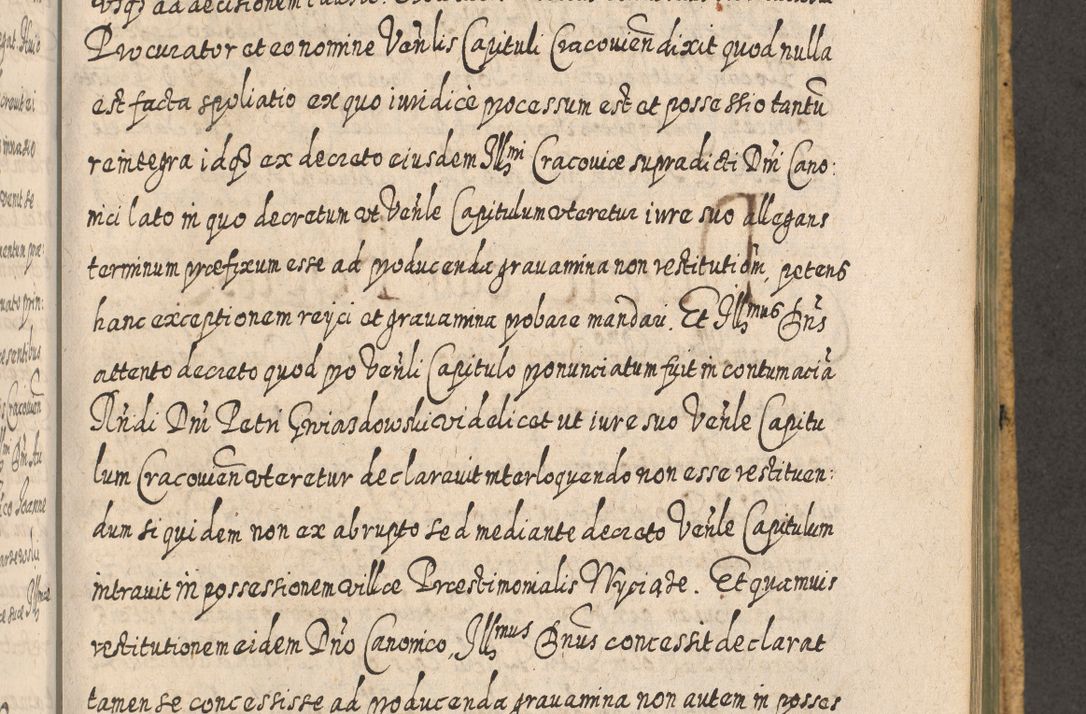 Procurator et eo nomine Ven̄lis Capituli Cracovien̄ dixit quod nulla
est facta spoliatio ex quo iuridicè processum est et possessio tantū
reintegra idq̄ ex decreto eiusdem Illmi Cracoviæ supradicti Dn̄i Cano:
nici lato in quo decretum ut Ven̄le Capitulum uteretur iure suo allegans
terminum præfixum esse ad producenda gravamina non restitution̄, petens
hanc exceptionem reijci et gravamina probare mandari. Et Illmus Dn̄s
attento decreto quod pro Ven̄li Capitulo pronunciatum fuit in contumaciā
Rn̄di Dn̄i Petri Gwiasdowski videlicet ut iure suo Ven̄le Capitu
lum Cracovien̄ uteretur declaravit interloquendo non esse restituen:
dum siquidem non ex abrupto sed mediante decreto Ven̄le Capitulum
intravit in possessionem villæ Præstimonialis Wyciąże. Et quamvis
restitutionem eidem Dn̄o Canonico, Illmus Dn̄us concessit declarat
tamen se concessisse ad producenda gravamina non autem in posses